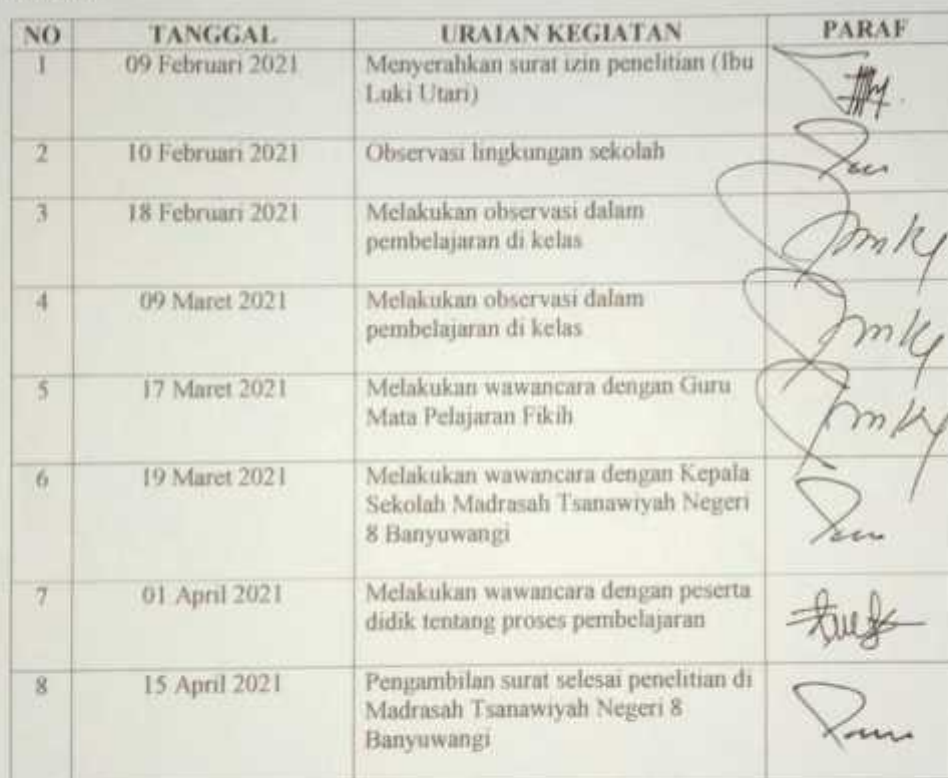 NO TANGGAL URAIAN KEGIATAN PARAF
1 09 Februari 2021 Menyerahkan surat izin penelitian (Ibu
Luki Utari)
2 10 Februari 2021 Observasi lingkungan sekolah
3 18 Februari 2021 Melakukan observasi dalam
pembelajaran di kelas
4 09 Maret 2021 Melakukan observasi dalam
pembelajaran di kelas
5 17 Maret 2021 Melakukan wawancara dengan Guru
Mata Pelajaran Fikih
6 19 Maret 2021 Melakukan wawancara dengan Kepala
Sekolah Madrasah Tsanawiyah Negeri
8 Banyuwangi
7 01 April 2021 Melakukan wawancara dengan peserta
didik tentang proses pembelajaran
8 15 April 2021 Pengambilan surat selesai penelitian di
Madrasah Tsanawiyah Negeri 8
Banyuwangi